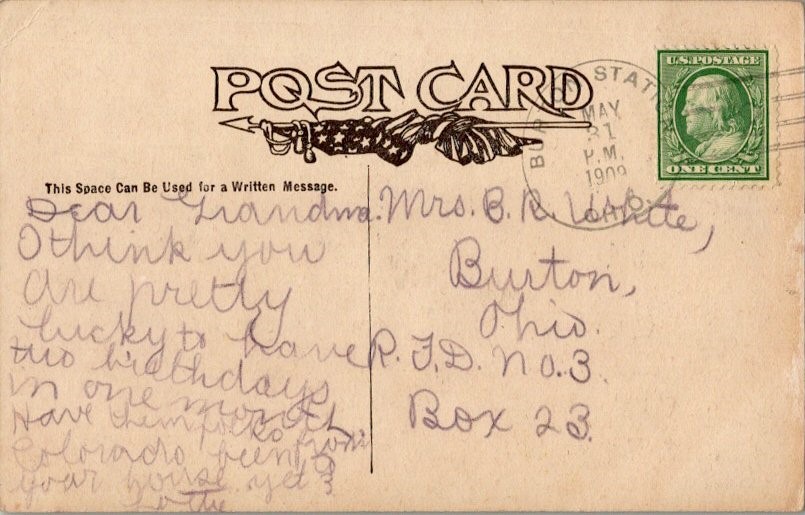 POST CARD
U.S. POSTAGE
ONE CENT
STATI
MAY
31
P.M.
1909
This Space Can Be Used for a Written Message.
Dear Grandma.
I think you
are pretty
lucky to have
two birthdays
in one month
Have them folks from
Colorado been to
your house yet?
Lottie
Mrs. B. R. White,
Burton,
Ohio.
R. F. D. No. 3
Box 23.